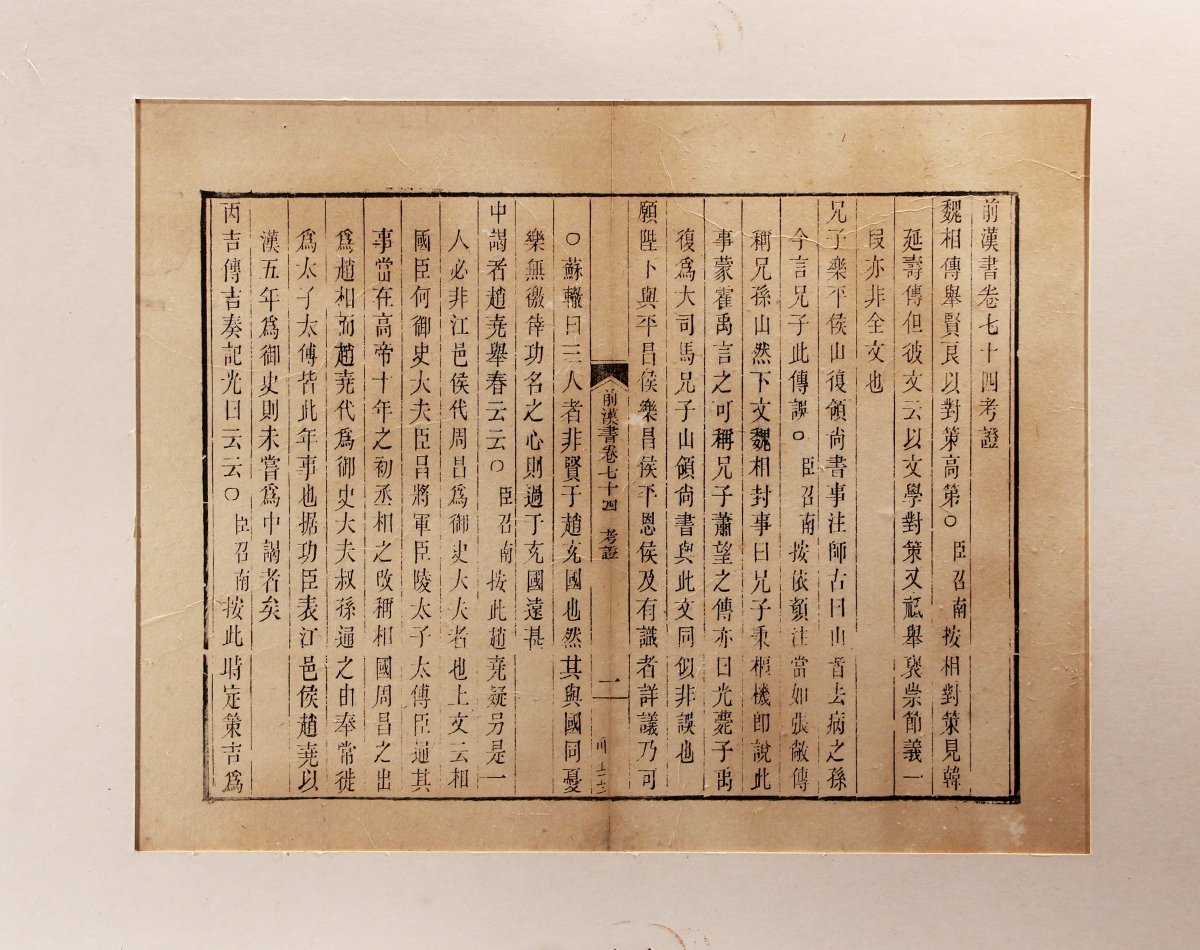 前漢書卷七十四考證
魏相傳舉賢良以對策高第○臣召南按相對策見韓
延壽傳但彼文云以文學對策又祗舉襃崇節義一
段亦非全文也
兄子樂平侯山復領尚書事注師古曰山者去病之孫
今言兄子此傳誤○臣召南按依顏注當如張敞傳
稱兄孫山然下文魏相封事曰兄子秉樞機卽說此
事蒙霍禹言之可稱兄子蕭望之傳亦曰光薨子禹
復爲大司馬兄子山領尚書與此文同似非誤也
願陛下與平昌侯樂昌侯平恩侯及有識者詳議乃可
前漢書卷七十四 考證 一
○蘇轍曰三人者非賢于趙充國也然其與國同憂
樂無徼倖功名之心則過于充國遠甚
中謁者趙堯舉春云云○臣召南按此趙堯疑另是一
人必非江邑侯代周昌爲御史大夫者也上文云相
國臣何御史大夫臣昌將軍臣陵太子太傅臣通其
事當在高帝十年之初丞相之改稱相國周昌之出
爲趙相而趙堯代爲御史大夫叔孫通之由奉常徙
爲太子太傅皆此年事也据功臣表江邑侯趙堯以
漢五年爲御史則未嘗爲中謁者矣
丙吉傳吉奏記光曰云云○臣召南按此時定策吉爲